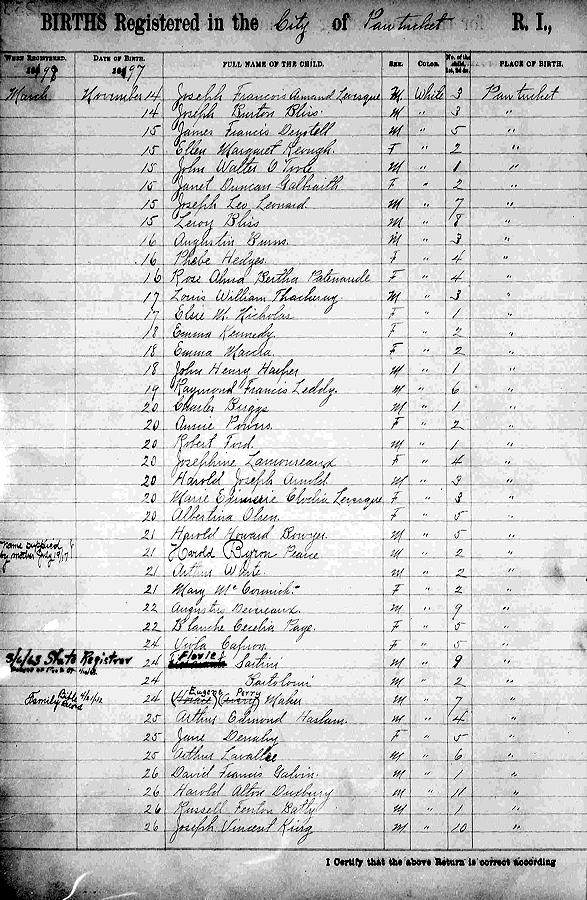 BIRTHS Registered in the City of Pawtucket R. I.,
WHEN REGISTERED. DATE OF BIRTH. FULL NAME OF THE CHILD. SEX. COLOR. No. of the child, 1st, 2d &c. PLACE OF BIRTH.
1898 1897
March November 14 Joseph Francois Armand Levesque M White 3 Pawtucket
14 Joseph Burton Bliss M " 3 "
15 James Francis M " 5 "
15 Ellen Margaret Keough F " 2 "
15 John Walter O Toole M " 1 "
15 Janet Duncan Galbraith F " 2 "
15 Joseph Leo Leonard M " 7 "
15 Leroy Bliss M " 8 "
16 Augustin Burns M " 3 "
16 Phebe Hedges F " 4 "
16 Rose Alma Bertha Patenaude F " 4 "
17 Louis William Thackeray M " 3 "
17 Elsie M. Nicholas F " 1 "
18 Emma Kennedy F " 2 "
18 Emma F " 2 "
18 John Henry Harper M " 1 "
19 Raymond Francis Leddy M " 6 "
20 Charles Briggs M " 1 "
20 Annie Powers F " 2 "
20 Robert Ford M " 1 "
20 Josephine Lamoureaux F " 4 "
20 Harold Joseph Arnold M " 3 "
20 Marie Clodia Levesque F " 3 "
20 Albertina Olsen F " 5 "
21 Harold Howard Bowyer M " 5 "
name supplied by mother July 19/17 21 Harold Byron Pearce M " 2 "
21 Arthur White M " 2 "
21 Mary McCormick F " 2 "
22 Augustus Devereaux M " 9 "
22 Blanche Cecelia Page F " 5 "
24 Viola Capron F " 5 "
3/6/63 State Registrar 24 Sartini M " 9 "
24 Bartolomi M " 2 "
Family Bible 24 (Horace) Eugene Perry Maker M " 7 "
25 Arthur Edmond Haslam M " 4 "
25 Jane Denahy F " 5 "
25 Arthur Lavallee M " 6 "
26 David Francis Galvin M " 1 "
26 Harold Alton Duxbury M " 11 "
26 Russell Fenton Batty M " 1 "
26 Joseph Vincent King M " 10 "
I Certify that the above Return is correct according